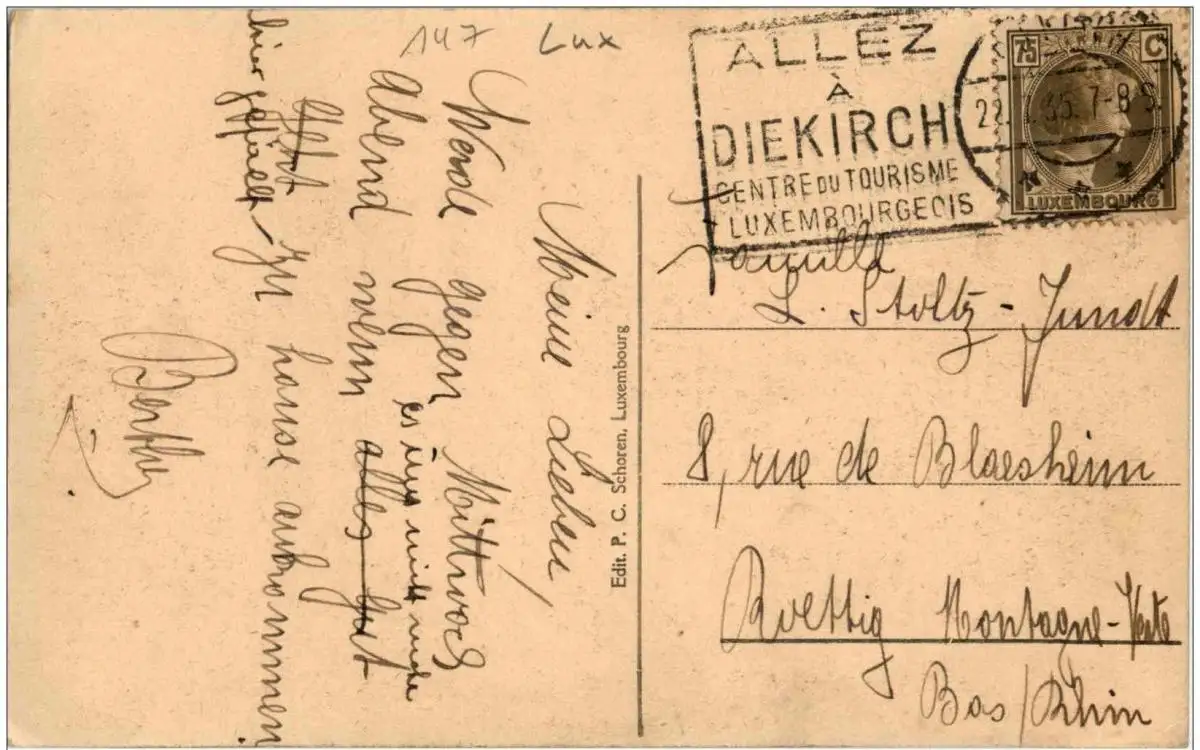 147 Lux
ALLEZ
À
DIEKIRCH
CENTRE DU TOURISME
LUXEMBOURGEOIS
22. 35.7-8
75 C
LUXEMBOURG
Meine Lieben,
Werde gegen Mittwoch
Abend wenn alles gut
es uns nicht mehr
geht zu hause ankommen
hier gefällt
Berthe
Edit. P. C. Schoren, Luxembourg
Famille
L. Stoltz-Jundt
8, rue de Blaesheim
Roettig Montagne-Verte
Bas/Rhin